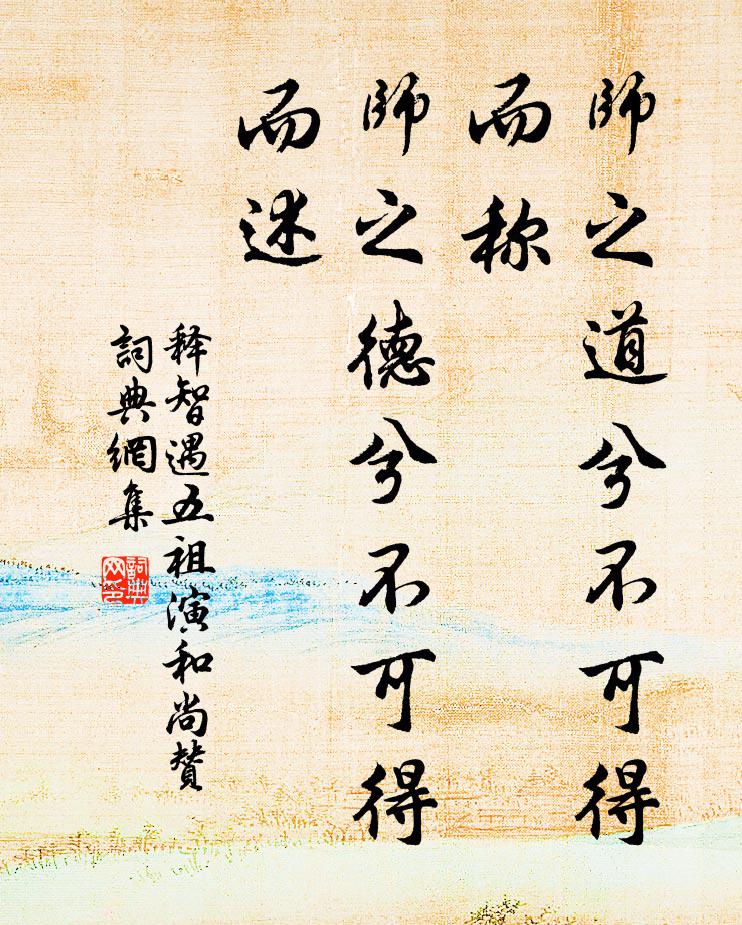 師之道兮不可得
而称
師之德兮不可得
而述
释智遇五祖演和尚贊
詞典網集
詞典网印